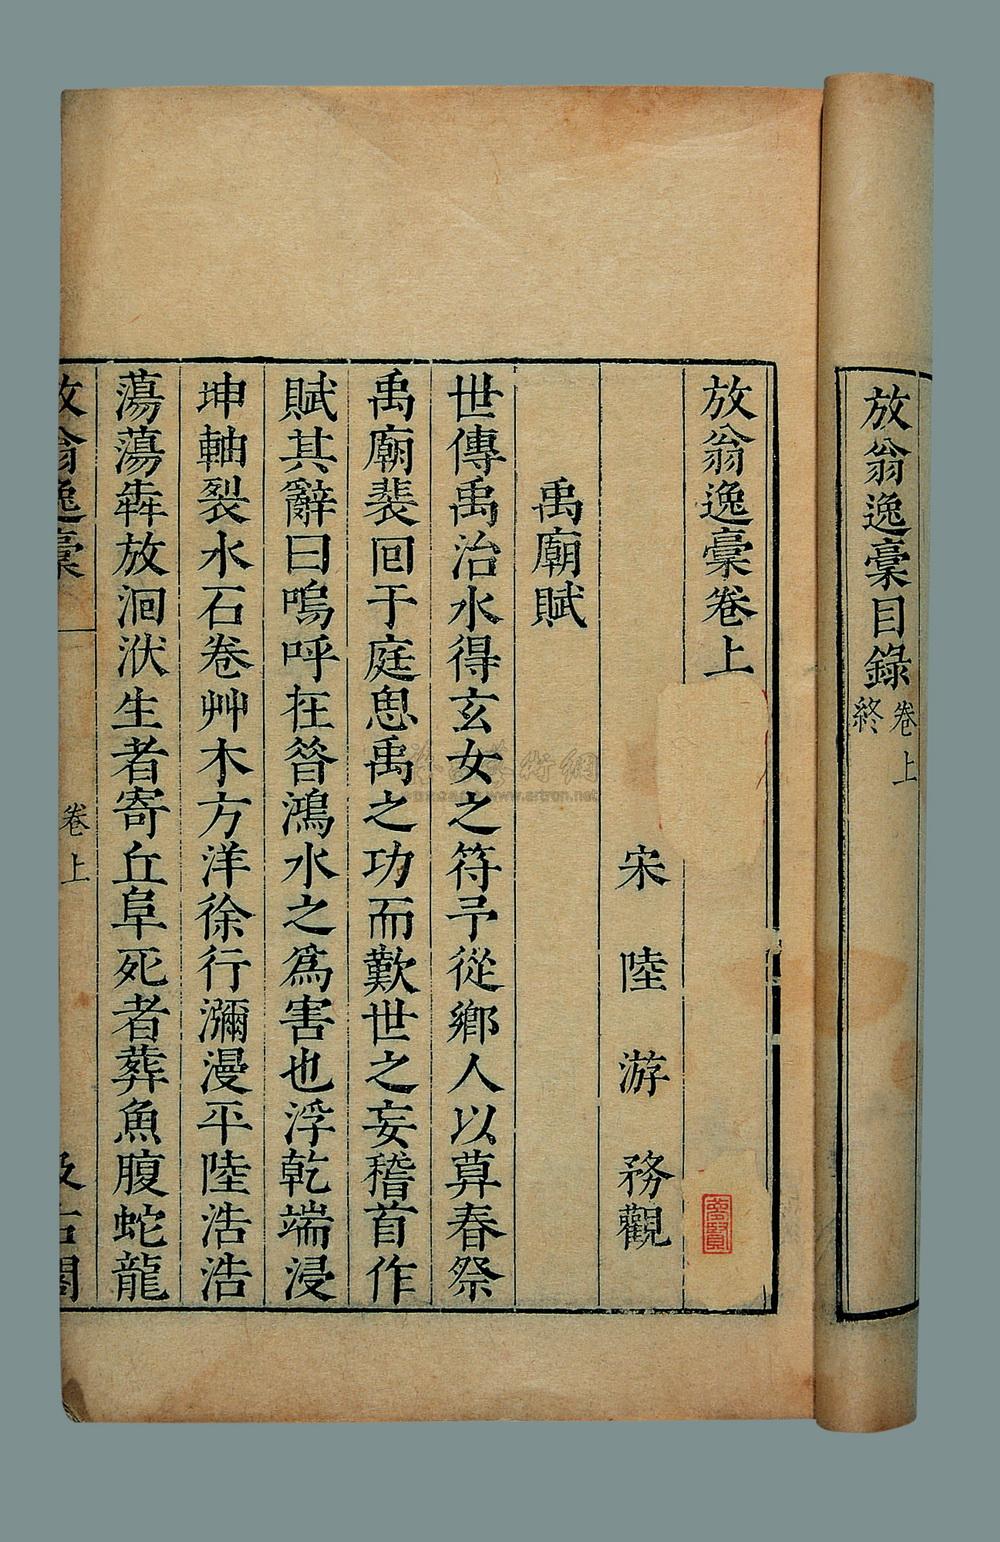 放翁逸稾目錄卷上
終
放翁逸稾卷上
宋陸游務觀
禹廟賦
世傳禹治水得玄女之符予從鄉人以草春祭
禹廟裴回于庭思禹之功而歎世之妄稽首作
賦其辭曰嗚呼在昝鴻水之為害也浮乾端浸
坤軸裂水石卷艸木方洋徐行瀰漫平陸浩浩
蕩蕩犇放洄洑生者寄丘阜死者葬魚腹蛇龍
放翁逸稾
卷上
汲古閣